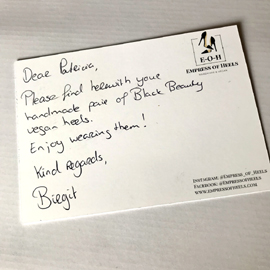 E·O·H
EMPRESS OF HEELS
Dear Patricia,
Please find herewith your
handmade pair of Black Beauty
vegan heels.
Enjoy wearing them!
Kind regards,
Birgit
INSTAGRAM: @EMPRESS_OF_HEELS
FACEBOOK: @EMPRESSOFHEELS
WWW.EMPRESSOFHEELS.COM